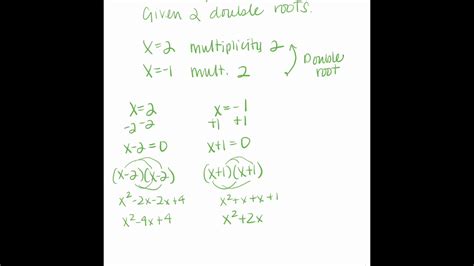 Given 2 double roots.
x=2 multiplicity 2
x=-1 mult. 2
Double root
x=2 x=-1
-2 -2 +1 +1
x-2=0 x+1=0
(x-2)(x-2) (x+1)(x+1)
x²-2x-2x+4 x²+x+x+1
x²-4x+4 x²+2x